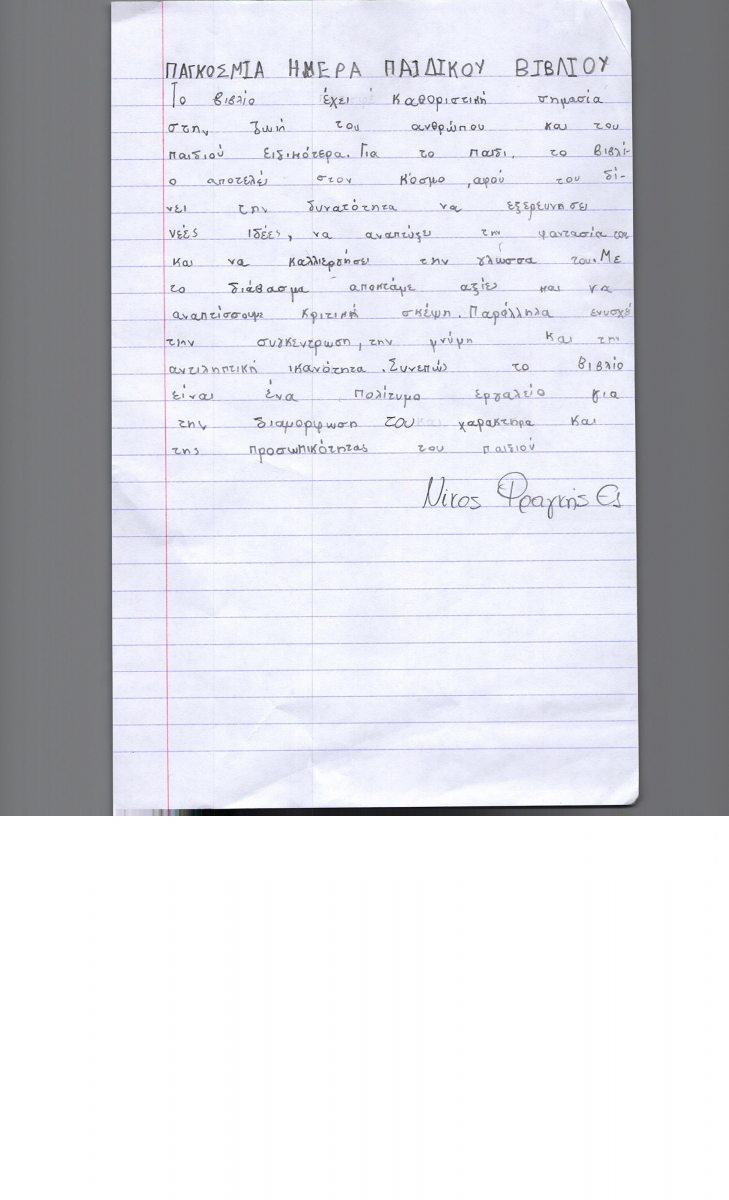 ΠΑΓΚΟΣΜΙΑ ΗΜΕΡΑ ΠΑΙΔΙΚΟΥ ΒΙΒΛΙΟΥ
Το βιβλίο έχει καθοριστική σημασία
στην ζωή του ανθρώπου και του
παιδιού ειδικότερα. Για το παιδι, το βιβλί-
ο αποτελεί στον κόσμο, αφού του δί-
νει την δυνατότητα να εξερευνησει
νεές ιδέες, να αναπτύξει την φαντασία του
και να καλλιεργήσει την γλώσσα του. Με
το διάβασμα αποκτάμε αξίες και να
αναπτίσσουμε κριτική σκέψη. Παράλληλα ενυσχέ
την συγκεντρωση, την μνήμη και την
αντιληπτική ικανότητα. Συνεπώς το βιβλίο
είναι ένα πολίτυμο εργαλείο για
την διαμορφωση του χαρακτηρα και
της προσωπικότητας του παιδιού
Νίκος Φραγκής Ε1